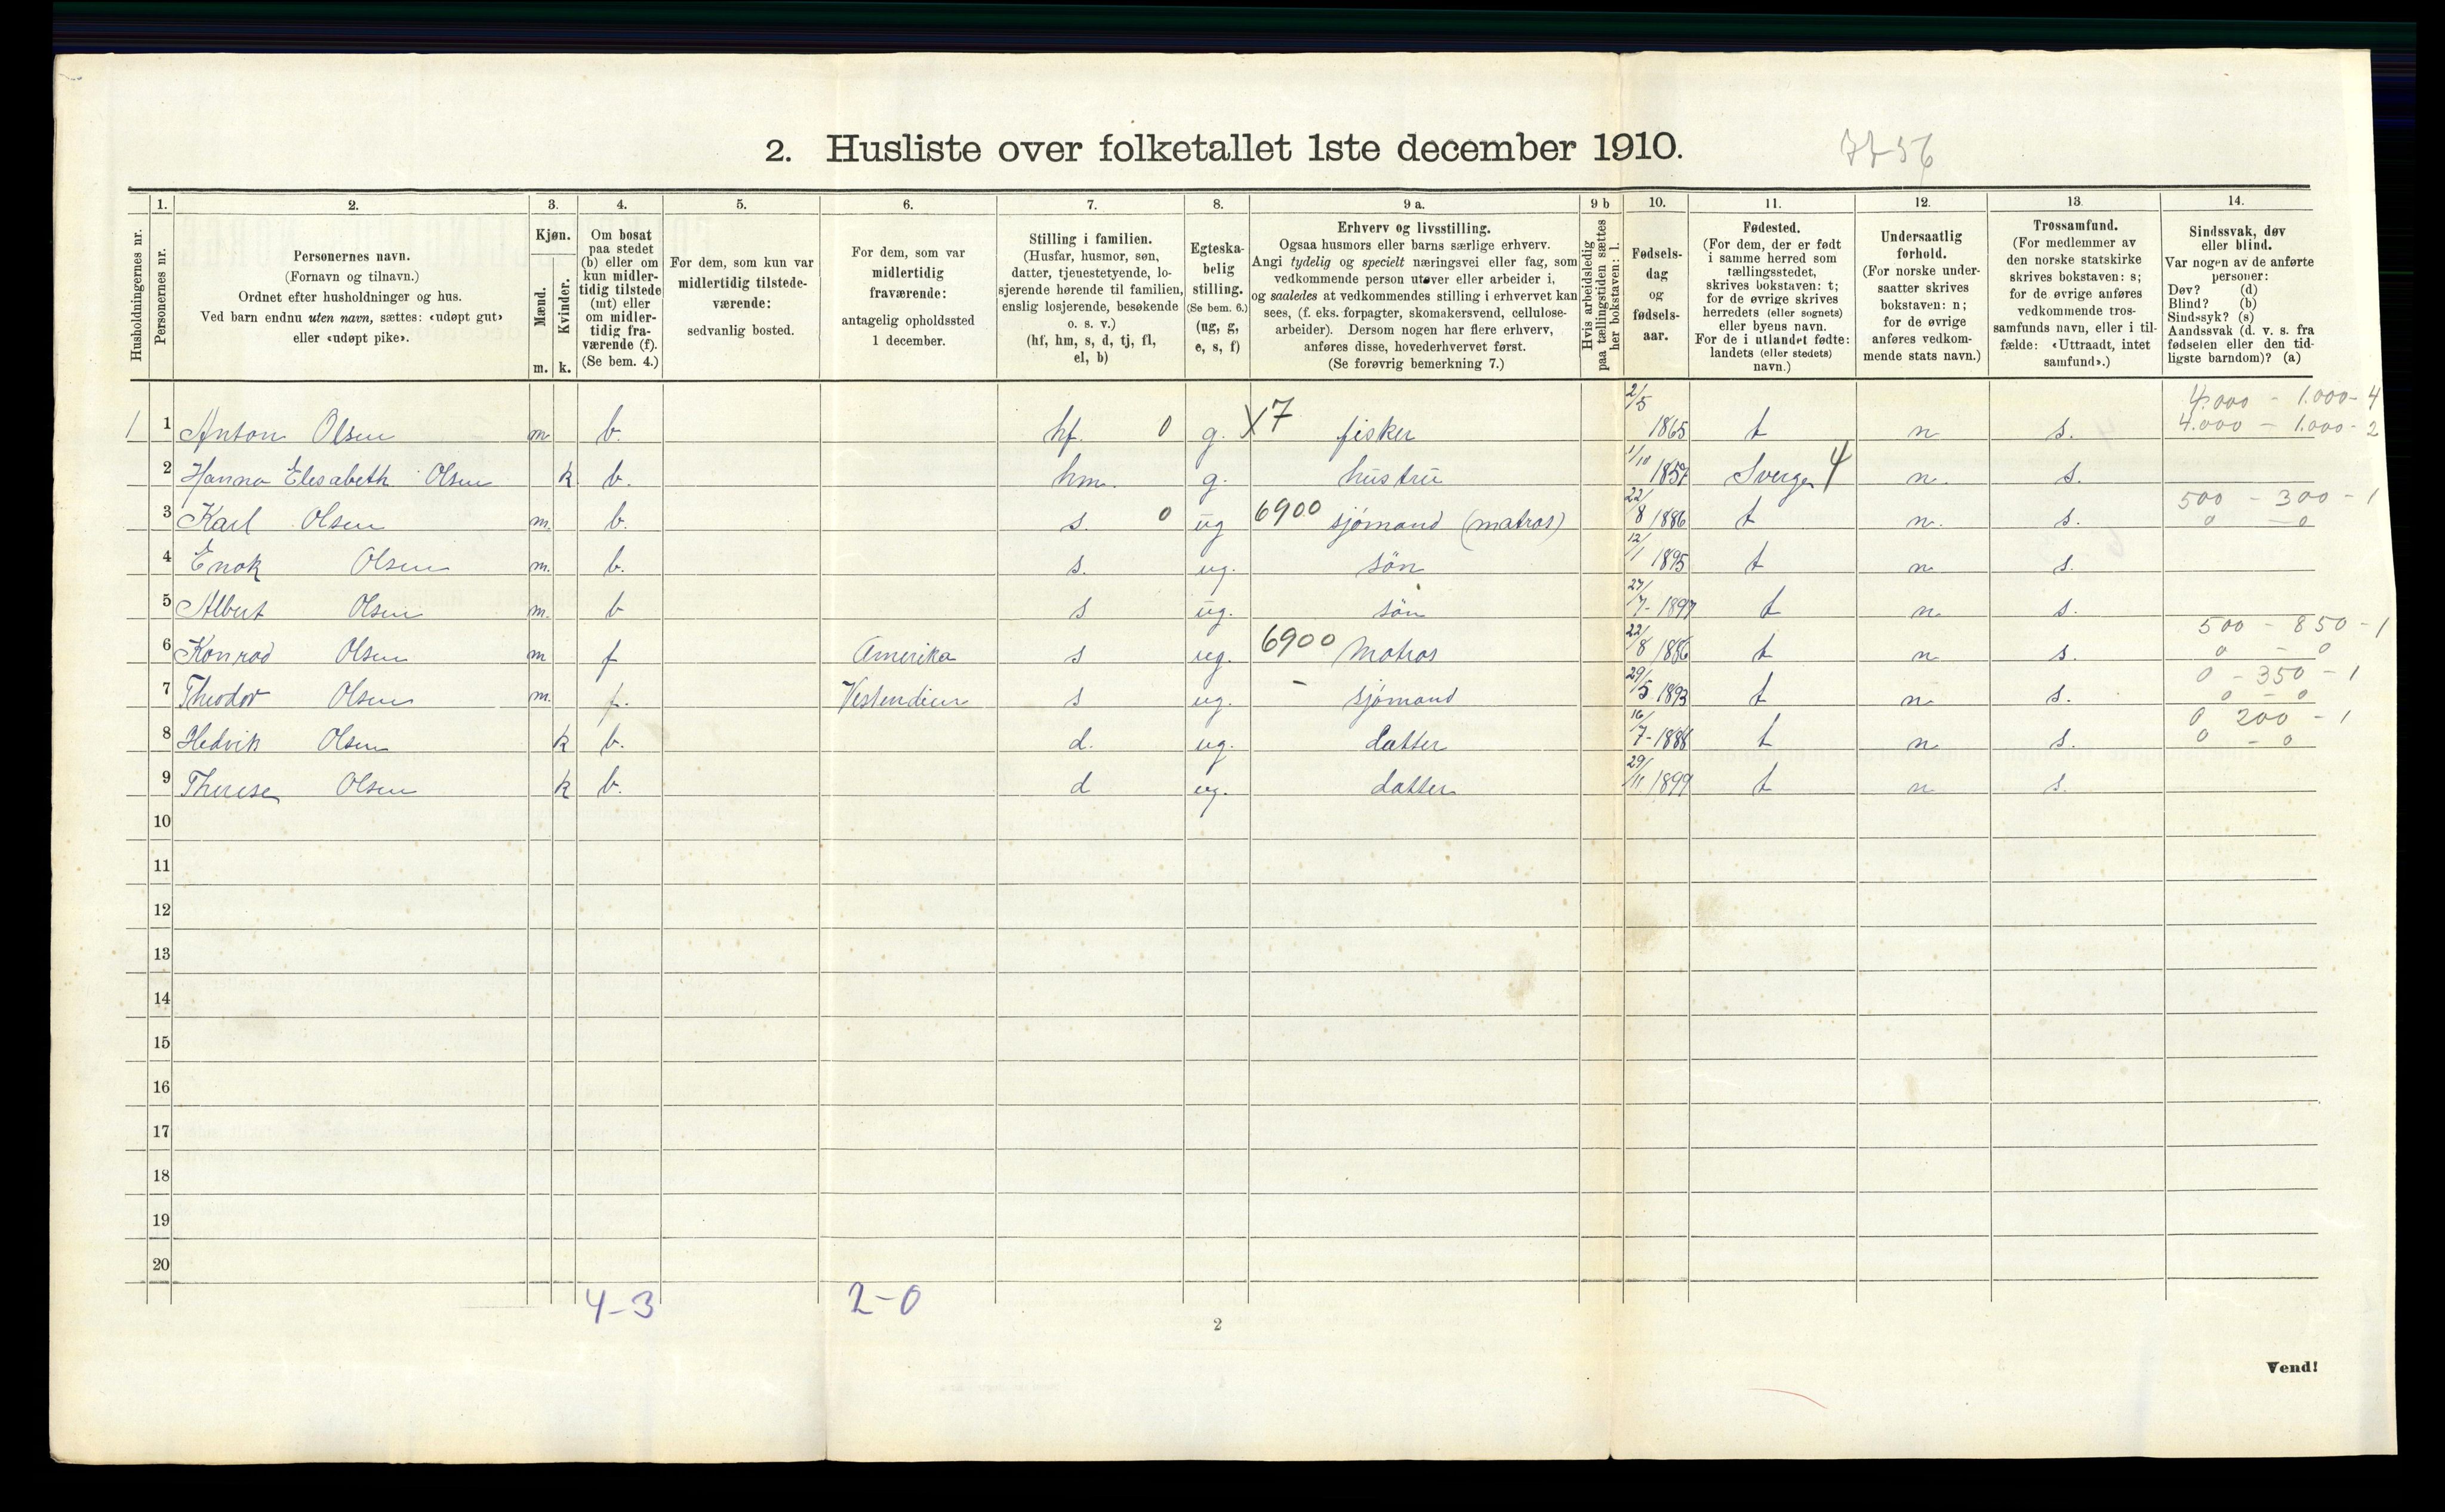 2. Husliste over folketallet 1ste december 1910.
7756
1. 2. 3. 4. 5. 6. 7. 8. 9 a. 9 b 10. 11. 12. 13. 14.
Husholdningernes nr.
Personernes nr.
Personernes navn.
(Fornavn og tilnavn.)
Ordnet efter husholdninger og hus.
Ved barn endnu uten navn, sættes: «udøpt gut»
eller «udøpt pike».
Kjøn.
Mænd.
Kvinder.
m. k.
Om bosat
paa stedet
(b) eller om
kun midler-
tidig tilstede
(mt) eller
om midler-
tidig fra-
værende (f).
(Se bem. 4.)
For dem, som kun var
midlertidig tilstede-
værende:
sedvanlig bosted.
For dem, som var
midlertidig
fraværende:
antagelig opholdssted
1 december.
Stilling i familien.
(Husfar, husmor, søn,
datter, tjenestetyende, lo-
sjerende hørende til familien,
enslig losjerende, besøkende
o. s. v.)
(hf, hm, s, d, tj, fl,
el, b)
Egteska-
belig
stilling.
(Se bem. 6.)
(ug, g,
e, s, f)
Erhverv og livsstilling.
Ogsaa husmors eller barns særlige erhverv.
Angi tydelig og specielt næringsvei eller fag, som
vedkommende person utøver eller arbeider i,
og saaledes at vedkommendes stilling i erhvervet kan
sees, (f. eks. forpagter, skomakersvend, cellulose-
arbeider). Dersom nogen har flere erhverv,
anføres disse, hovederhvervet først.
(Se forøvrig bemerkning 7.)
Hvis arbeidsledig
paa tællingstiden sættes
her bokstaven: l.
Fødsels-
dag
og
fødsels-
aar.
Fødested.
(For dem, der er født
i samme herred som
tællingsstedet,
skrives bokstaven: t;
for de øvrige skrives
herredets (eller sognets)
eller byens navn.
For de i utlandet fødte:
landets (eller stedets)
navn.)
Undersaatlig
forhold.
(For norske under-
saatter skrives
bokstaven: n;
for de øvrige
anføres vedkom-
mende stats navn.)
Trossamfund.
(For medlemmer av
den norske statskirke
skrives bokstaven: s;
for de øvrige anføres
vedkommende tros-
samfunds navn, eller i til-
fælde: «Uttraadt, intet
samfund».)
Sindssvak, døv
eller blind.
Var nogen av de anførte
personer:
Døv? (d)
Blind? (b)
Sindssyk? (s)
Aandssvak (d. v. s. fra
fødselen eller den tid-
ligste barndom)? (a)
4.000 - 1.000 - 4
1 1 Anton Olsen m. b. hf. 0 g. X7 fisker 2/5 1865 t n s. 4.000 - 1.000 - 2
2 Hanna Elesabeth Olsen k b. hm. g. hustru 1/10 1857 Sverge 4 n. s.
500 - 300 - 1
3 Karl Olsen m. b. s. 0 ug 6900 sjømand (matros) 22/8 1886 t n. s. 0 - 0
4 Enok Olsen m. b. s. ug. søn 12/1 1895 t n. s.
5 Albert Olsen m. b s ug. søn 27/7 - 1897 t n. s.
500 - 850 - 1
6 Konrad Olsen m f Amerika s ug. 6900 Matros 22/8 1886 t n s. 0 - 0
0 - 350 - 1
7 Theodor Olsen m. f. Vestendien s ug. - sjømand 29/5 1893 t n. s. 0 - 0
0 200 - 1
8 Hedvik Olsen k b. d. ug. datter 16/7 - 1888 t n s. 0 - 0
9 Therese Olsen k b. d ug. datter 29/11 1899 t n s.
10
11
12
13
14
15
16
17
18
19
20
4-3 2-0
2
Vend!